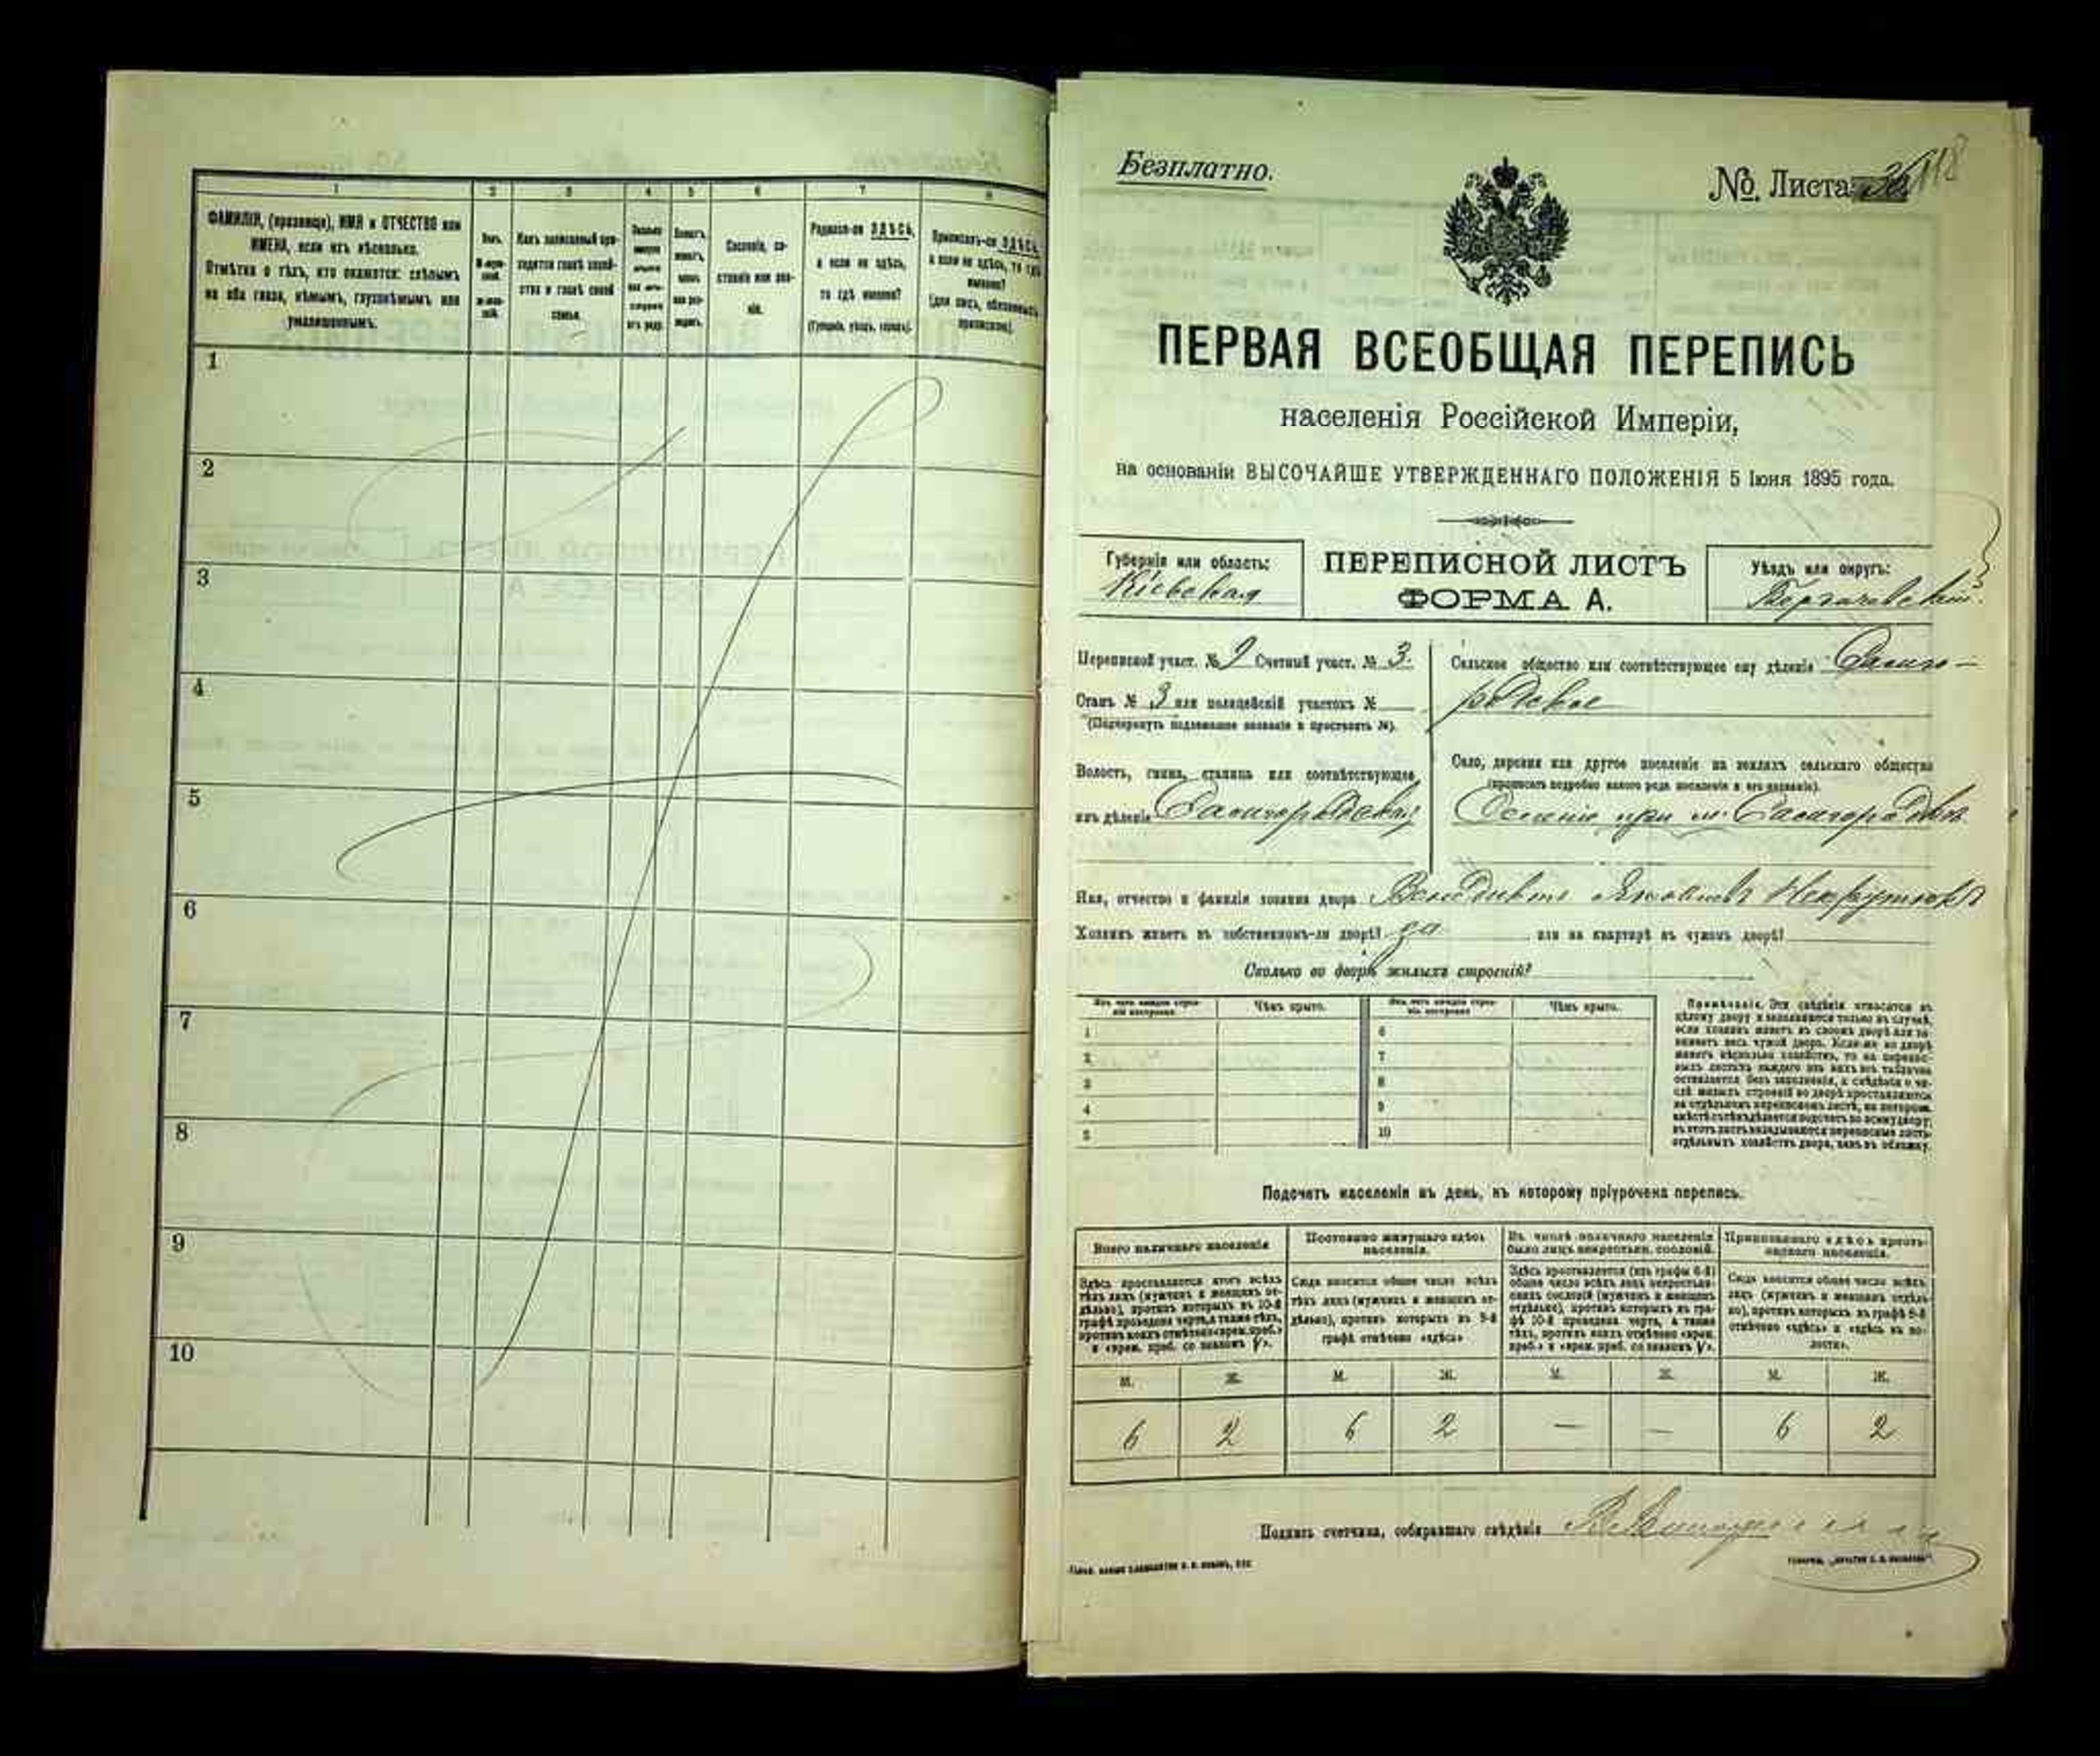 1 2 3 4 5 6 7 8
ФАМИЛІЯ, (прозвище), ИМЯ и ОТЧЕСТВО или
ИМЕНА, если ихъ нѣсколько.
Отмѣтка о тѣхъ, кто окажется: слѣпымъ
на оба глаза, нѣмымъ, глухонѣмымъ или
умалишеннымъ.
Полъ.
Какъ записанный при-
ходится главѣ хозяй-
ства и главѣ своей
семьи.
Сословіе, со-
стояніе или зва-
ніе.
Родился-ли ЗДѢСЬ,
а если не здѣсь,
то гдѣ именно?
(Губернія, уѣздъ, городъ).
Приписанъ-ли ЗДѢСЬ,
а если не здѣсь, то гдѣ
именно?
(для лицъ, обязанныхъ
припиской).
1
2
3
4
5
6
7
8
9
10
Безплатно.
№ Листа 118
ПЕРВАЯ ВСЕОБЩАЯ ПЕРЕПИСЬ
населенія Россійской Имперіи,
на основаніи ВЫСОЧАЙШЕ УТВЕРЖДЕННАГО ПОЛОЖЕНІЯ 5 Іюня 1895 года.
Губернія или область:
Кіевская
ПЕРЕПИСНОЙ ЛИСТЪ
ФОРМА А.
Уѣздъ или округъ:
Переписной участ. № 9 Счетный участ. № 3.
Станъ № 3 или полицейскій участокъ №
(Подчеркнуть подлежащее названіе и проставить №).
Волость, гмина, станица или соотвѣтствующее
имъ дѣленіе
Сельское общество или соотвѣтствующее ему дѣленіе
Село, деревня или другое поселеніе на земляхъ сельскаго общества
(прописать подробно какого рода поселеніе и его названіе).
при м.
Имя, отчество и фамилія хозяина двора
Хозяинъ живетъ въ собственномъ-ли дворѣ? да или на квартирѣ въ чужомъ дворѣ?
Сколько во дворѣ жилыхъ строеній?
Изъ чего каждое строе-
ніе построено Чѣмъ крыто. Изъ чего каждое строе-
ніе построено Чѣмъ крыто.
1 6
2 7
3 8
4 9
5 10
Примѣчаніе. Эти свѣдѣнія относятся къ
цѣлому двору и заполняются только въ случаѣ,
если хозяинъ живетъ въ своемъ дворѣ или за-
нимаетъ весь чужой дворъ. Если-же во дворѣ
живетъ нѣсколько хозяйствъ, то на перепис-
ныхъ листахъ каждаго изъ нихъ эта табличка
оставляется безъ заполненія, а свѣдѣнія о чи-
слѣ жилыхъ строеній во дворѣ проставляются
на отдѣльномъ переписномъ листѣ, на которомъ
вмѣстѣ съ тѣмъ дѣлается подсчетъ по всему двору;
въ этотъ листъ вкладываются переписные листы
отдѣльныхъ хозяйствъ двора, какъ въ обложку.
Подсчетъ населенія въ день, къ которому пріурочена перепись.
Всего наличнаго населенія
Здѣсь проставляется итогъ всѣхъ
тѣхъ лицъ (мужчинъ и женщинъ от-
дѣльно), противъ которыхъ въ 10-й
графѣ проведена черта, а также тѣхъ,
противъ коихъ отмѣчено «врем. преб.»
и «врем. преб. со знакомъ V».
Постоянно живущаго здѣсь
населенія.
Сюда вносится общее число всѣхъ
тѣхъ лицъ (мужчинъ и женщинъ от-
дѣльно), противъ которыхъ въ 9-й
графѣ отмѣчено «здѣсь»
Въ числѣ наличнаго населенія
было лицъ некрестьян. сословій.
Здѣсь проставляется (изъ графы 6-й)
общее число всѣхъ лицъ некрестьян-
скихъ сословій (мужчинъ и женщинъ
отдѣльно), противъ которыхъ въ гра-
фѣ 10-й проведена черта, а также
тѣхъ, противъ коихъ отмѣчено «врем.
преб.» и «врем. преб. со знакомъ V».
Приписаннаго здѣсь кресть-
янскаго населенія.
Сюда вносится общее число всѣхъ
лицъ (мужчинъ и женщинъ отдѣль-
но), противъ которыхъ въ графѣ 8-й
отмѣчено «здѣсь» и «здѣсь въ во-
лости».
М. Ж. М. Ж. М. Ж. М. Ж.
6 2 6 2 — — 6 2
Подпись счетчика, собиравшаго свѣдѣнія